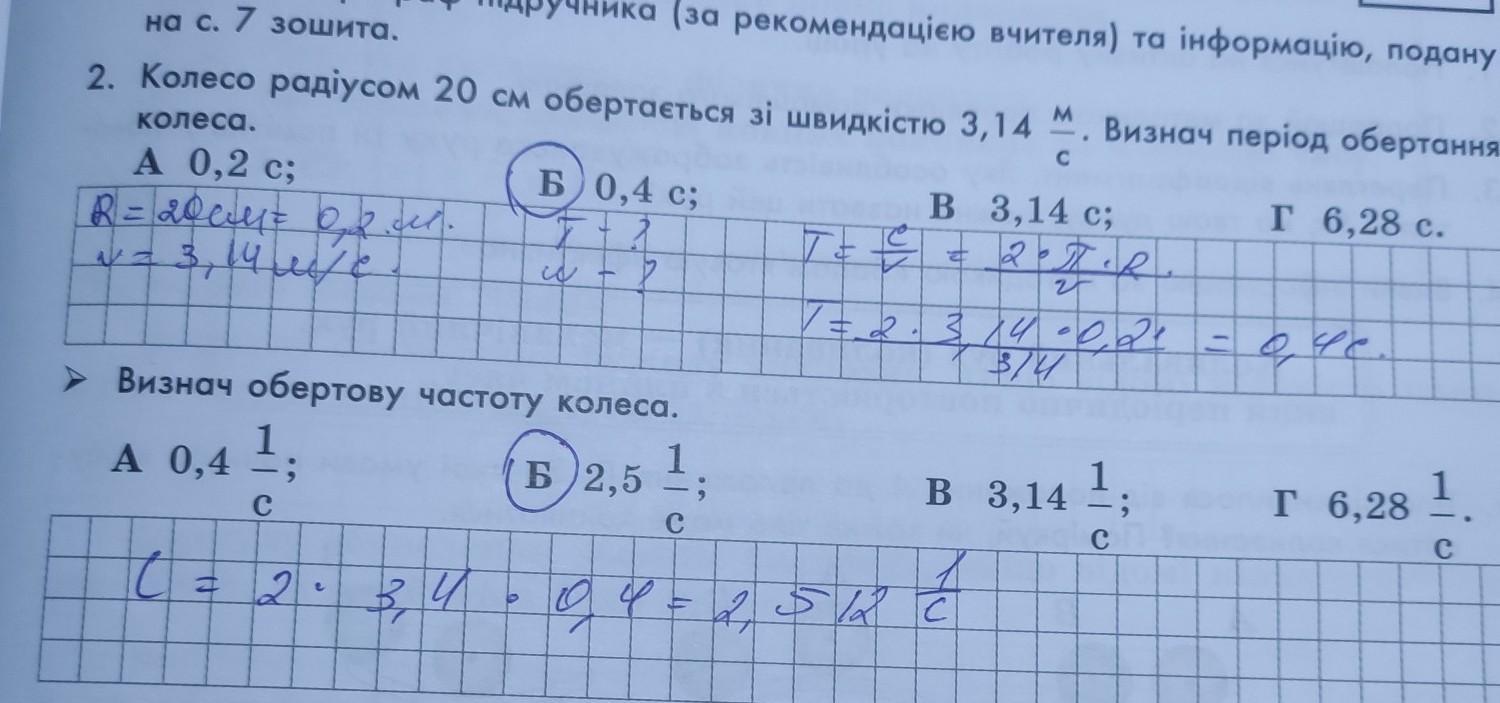 підручника (за рекомендацією вчителя) та інформацію, подану
на с. 7 зошита.
2. Колесо радіусом 20 см обертається зі швидкістю 3,14 м/с. Визнач період обертання
колеса.
А 0,2 с; Б 0,4 с; В 3,14 с; Г 6,28 с.
R = 20см = 0,2 м. T - ? T = C/v = 2·π·R/v.
v = 3,14 м/с. n - ?
T = 2·3,14·0,2/3,14 = 0,4с.
➤ Визнач обертову частоту колеса.
А 0,4 1/с; Б 2,5 1/с; В 3,14 1/с; Г 6,28 1/с.
C = 2 · 3,14 · 0,4 = 2,512 1/с